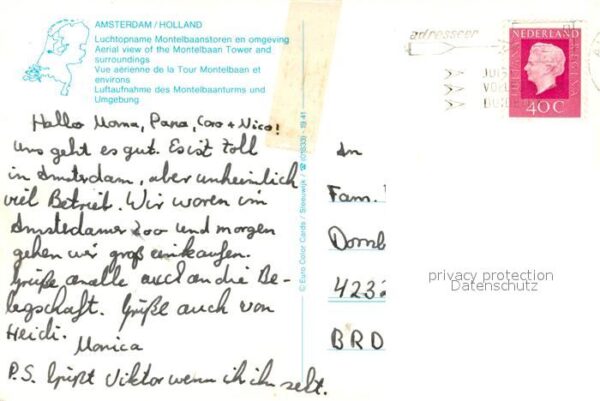 AMSTERDAM / HOLLAND
Luchtopname Montelbaanstoren en omgeving
Aerial view of the Montelbaan Tower and
surroundings
Vue aérienne de la Tour Montelbaan et
environs
Luftaufnahme des Montelbaanturms und
Umgebung
Hallo Mama, Papa, Caro + Nico!
Uns geht es gut. Es ist toll
in Amsterdam, aber unheimlich
viel Betrieb. Wir waren im
Amsterdamer Zoo und morgen
gehen wir groß einkaufen.
Grüße an alle auch an die Be-
legschaft. Grüße auch von
Heidi.
Monica
P.S. Grüßt Viktor wenn ih ihn seht.
© Euro Color Cards / Steeuwijk / ☎ (01833) - 19 41
An
Fam.
Domb
4232
BRD
adresseer
NEDERLAND
JULIANA REGINA
40 C
privacy protection
Datenschutz